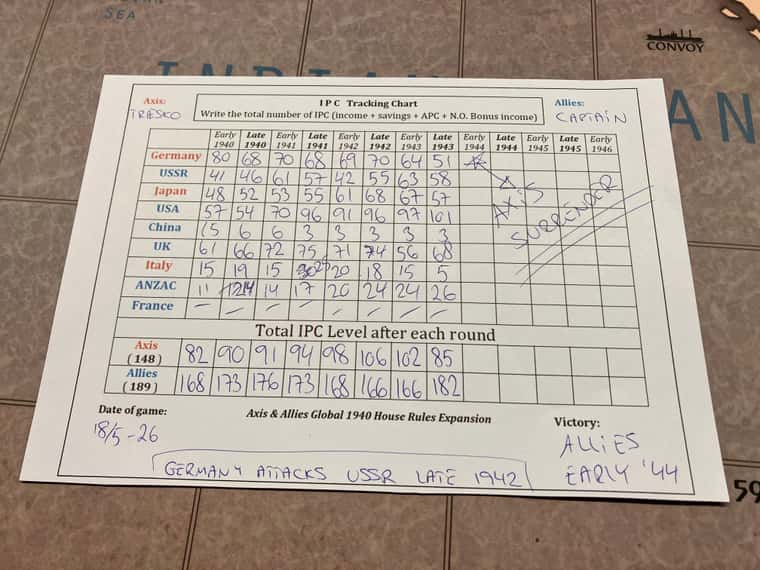 SEA
INDIAN
CONVOY
AN
Axis:
TRESKO
IPC Tracking Chart
Write the total number of IPC (income + savings + APC + N.O. Bonus income)
Allies:
CAPTAIN
Early 1940 Late 1940 Early 1941 Late 1941 Early 1942 Late 1942 Early 1943 Late 1943 Early 1944 Late 1944 Early 1945 Late 1945 Early 1946
Germany 80 68 70 68 69 70 64 51
USSR 41 46 61 57 42 55 63 58
Japan 48 52 53 55 61 68 67 57
USA 57 54 70 96 91 96 97 101
China 15 6 6 3 3 3 3 3
UK 61 66 72 75 71 74 56 68
Italy 15 19 15 25 20 18 15 5
ANZAC 11 14 14 17 20 24 24 26
France – – – – – – – –
AXIS
SURRENDER
Total IPC Level after each round
Axis (148) 82 90 91 94 98 106 102 85
Allies (189) 168 173 176 173 168 166 166 182
Date of game:
18/5-26
Axis & Allies Global 1940 House Rules Expansion
Victory:
ALLIES
EARLY '44
GERMANY ATTACKS USSR LATE 1942
59